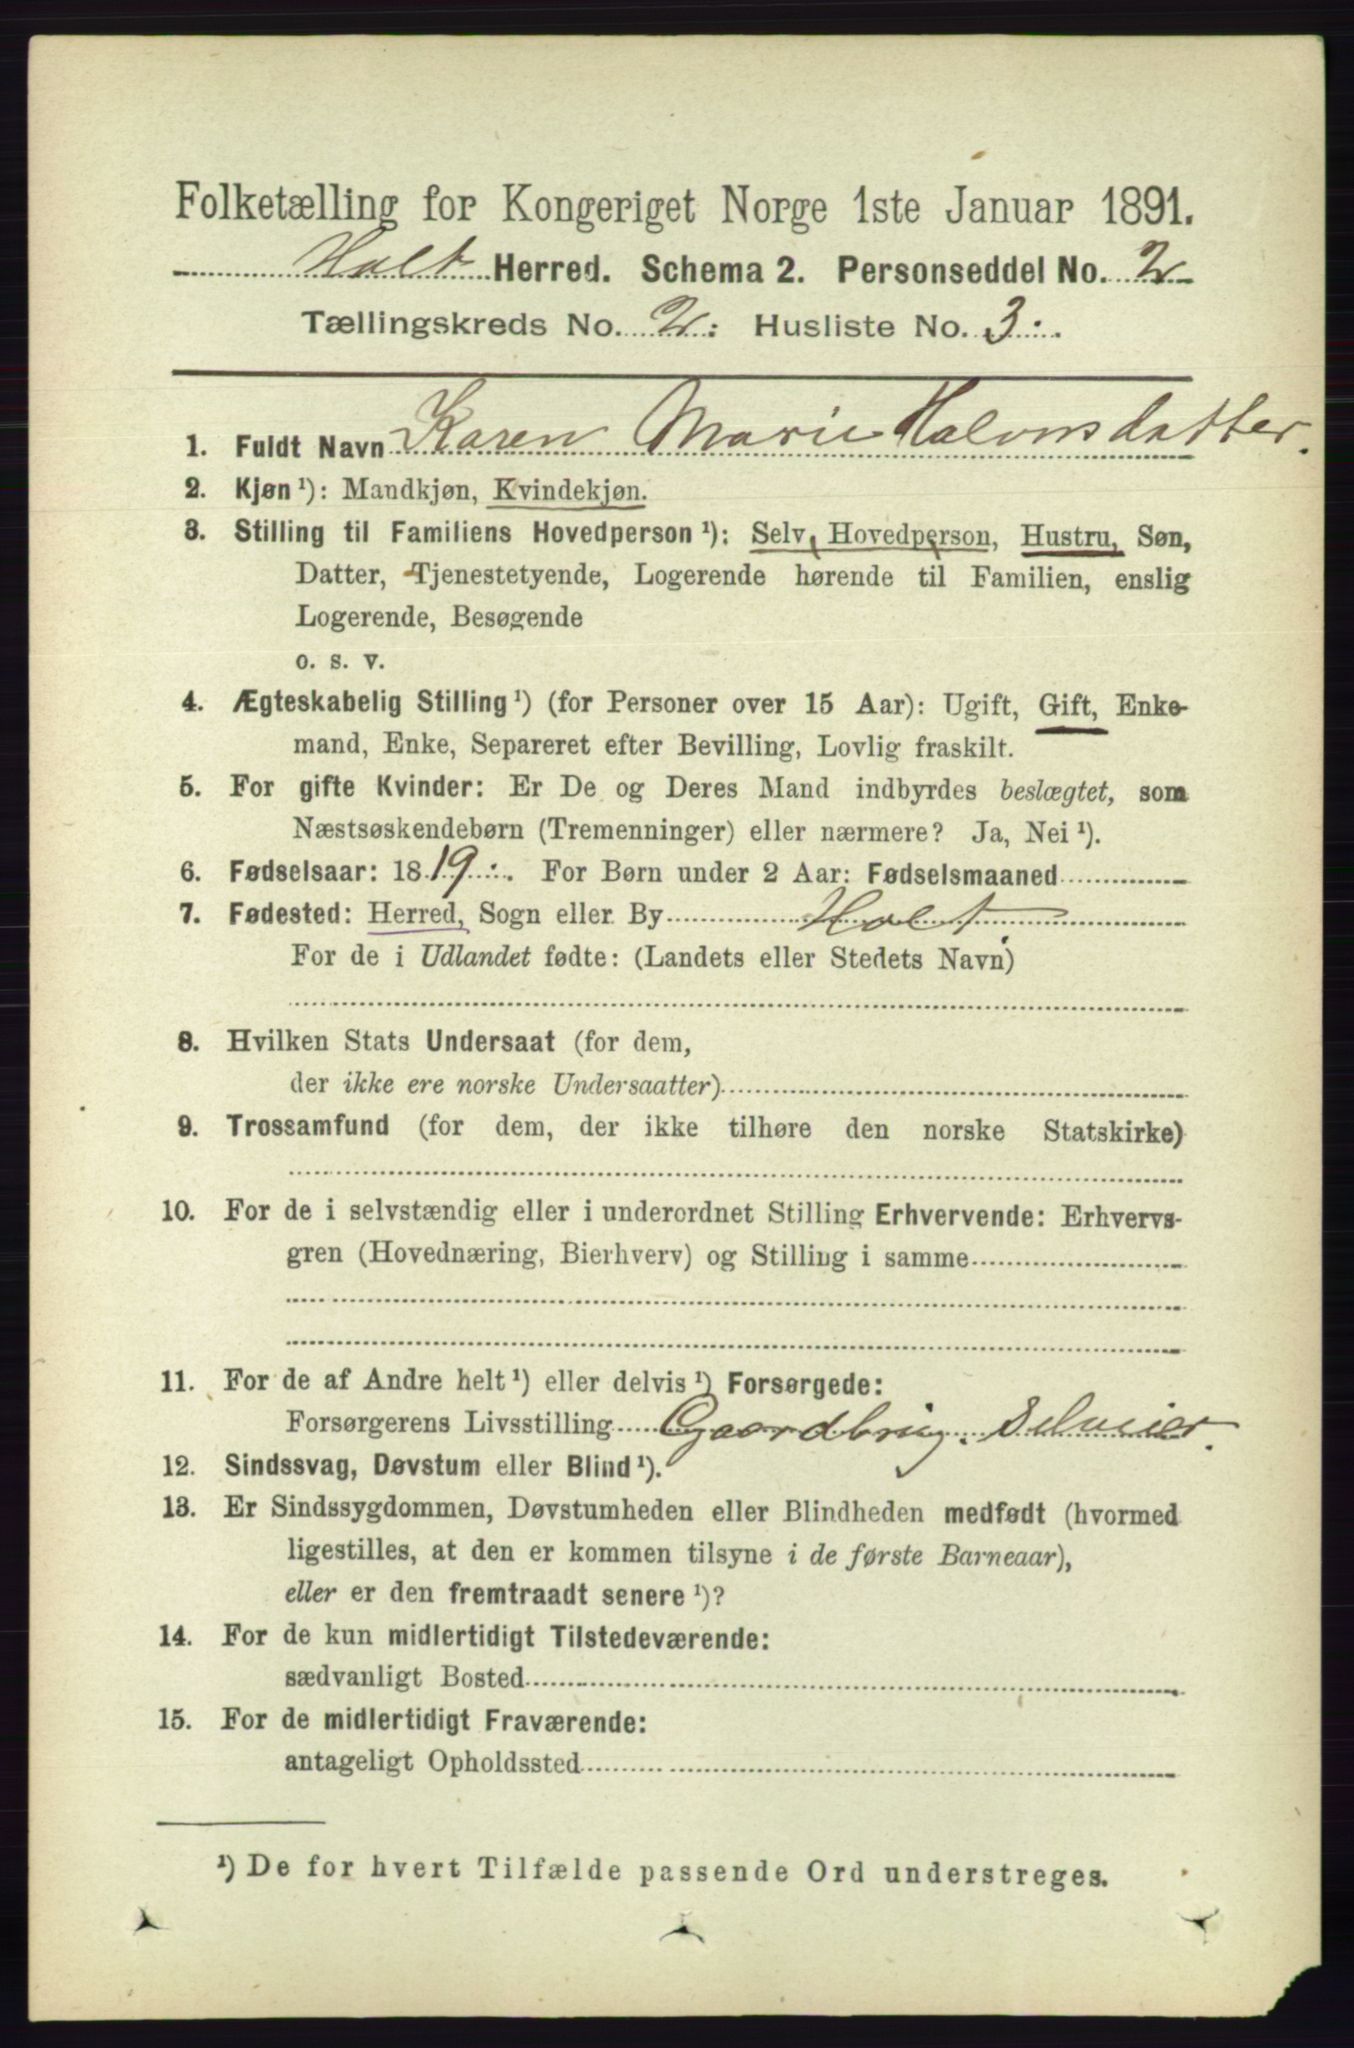 Folketælling for Kongeriget Norge 1ste Januar 1891.
Holt Herred. Schema 2. Personseddel No. 2
Tællingskreds No. 2. Husliste No. 3.
1. Fuldt Navn Karen Marie Halvorsdatter.
2. Kjøn ¹): Mandkjøn, Kvindekjøn.
3. Stilling til Familiens Hovedperson ¹): Selv Hovedperson, Hustru, Søn,
Datter, Tjenestetyende, Logerende hørende til Familien, enslig
Logerende, Besøgende
o. s. v.
4. Ægteskabelig Stilling ¹) (for Personer over 15 Aar): Ugift, Gift, Enke-
mand, Enke, Separeret efter Bevilling, Lovlig fraskilt.
5. For gifte Kvinder: Er De og Deres Mand indbyrdes beslægtet, som
Næstsøskendebørn (Tremenninger) eller nærmere? Ja, Nei ¹).
6. Fødselsaar: 1819. For Børn under 2 Aar: Fødselsmaaned
7. Fødested: Herred, Sogn eller By Holt.
For de i Udlandet fødte: (Landets eller Stedets Navn)
8. Hvilken Stats Undersaat (for dem,
der ikke ere norske Undersaatter)
9. Trossamfund (for dem, der ikke tilhøre den norske Statskirke)
10. For de i selvstændig eller i underordnet Stilling Erhvervende: Erhvervs-
gren (Hovednæring, Bierhverv) og Stilling i samme
11. For de af Andre helt ¹) eller delvis ¹) Forsørgede:
Forsørgerens Livsstilling Gaardbrug. Selveier.
12. Sindssvag, Døvstum eller Blind ¹).
13. Er Sindssygdommen, Døvstumheden eller Blindheden medfødt (hvormed
ligestilles, at den er kommen tilsyne i de første Barneaar),
eller er den fremtraadt senere ¹)?
14. For de kun midlertidigt Tilstedeværende:
sædvanligt Bosted
15. For de midlertidigt Fraværende:
antageligt Opholdssted
¹) De for hvert Tilfælde passende Ord understreges.